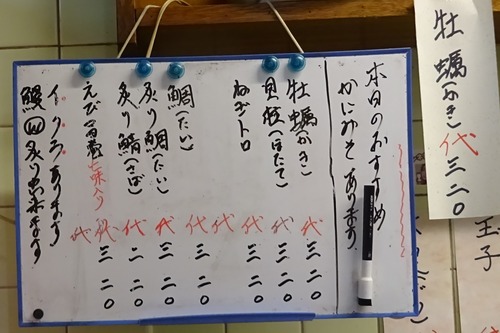 牡蠣(かき)代三二〇
玉子
本日のおすすめ
かにみそあります
牡蠣(かき)代三二〇
貝柱(ほたて)代三二〇
ねぎトロ 代三二〇
代
鯛(たい)代三二〇
炙り鯛(たい)代三二〇
炙り鯖(さば)代二二〇
えび 巻 七味入り 代三二〇
イクラあります 代
鰻 炙り出来ます